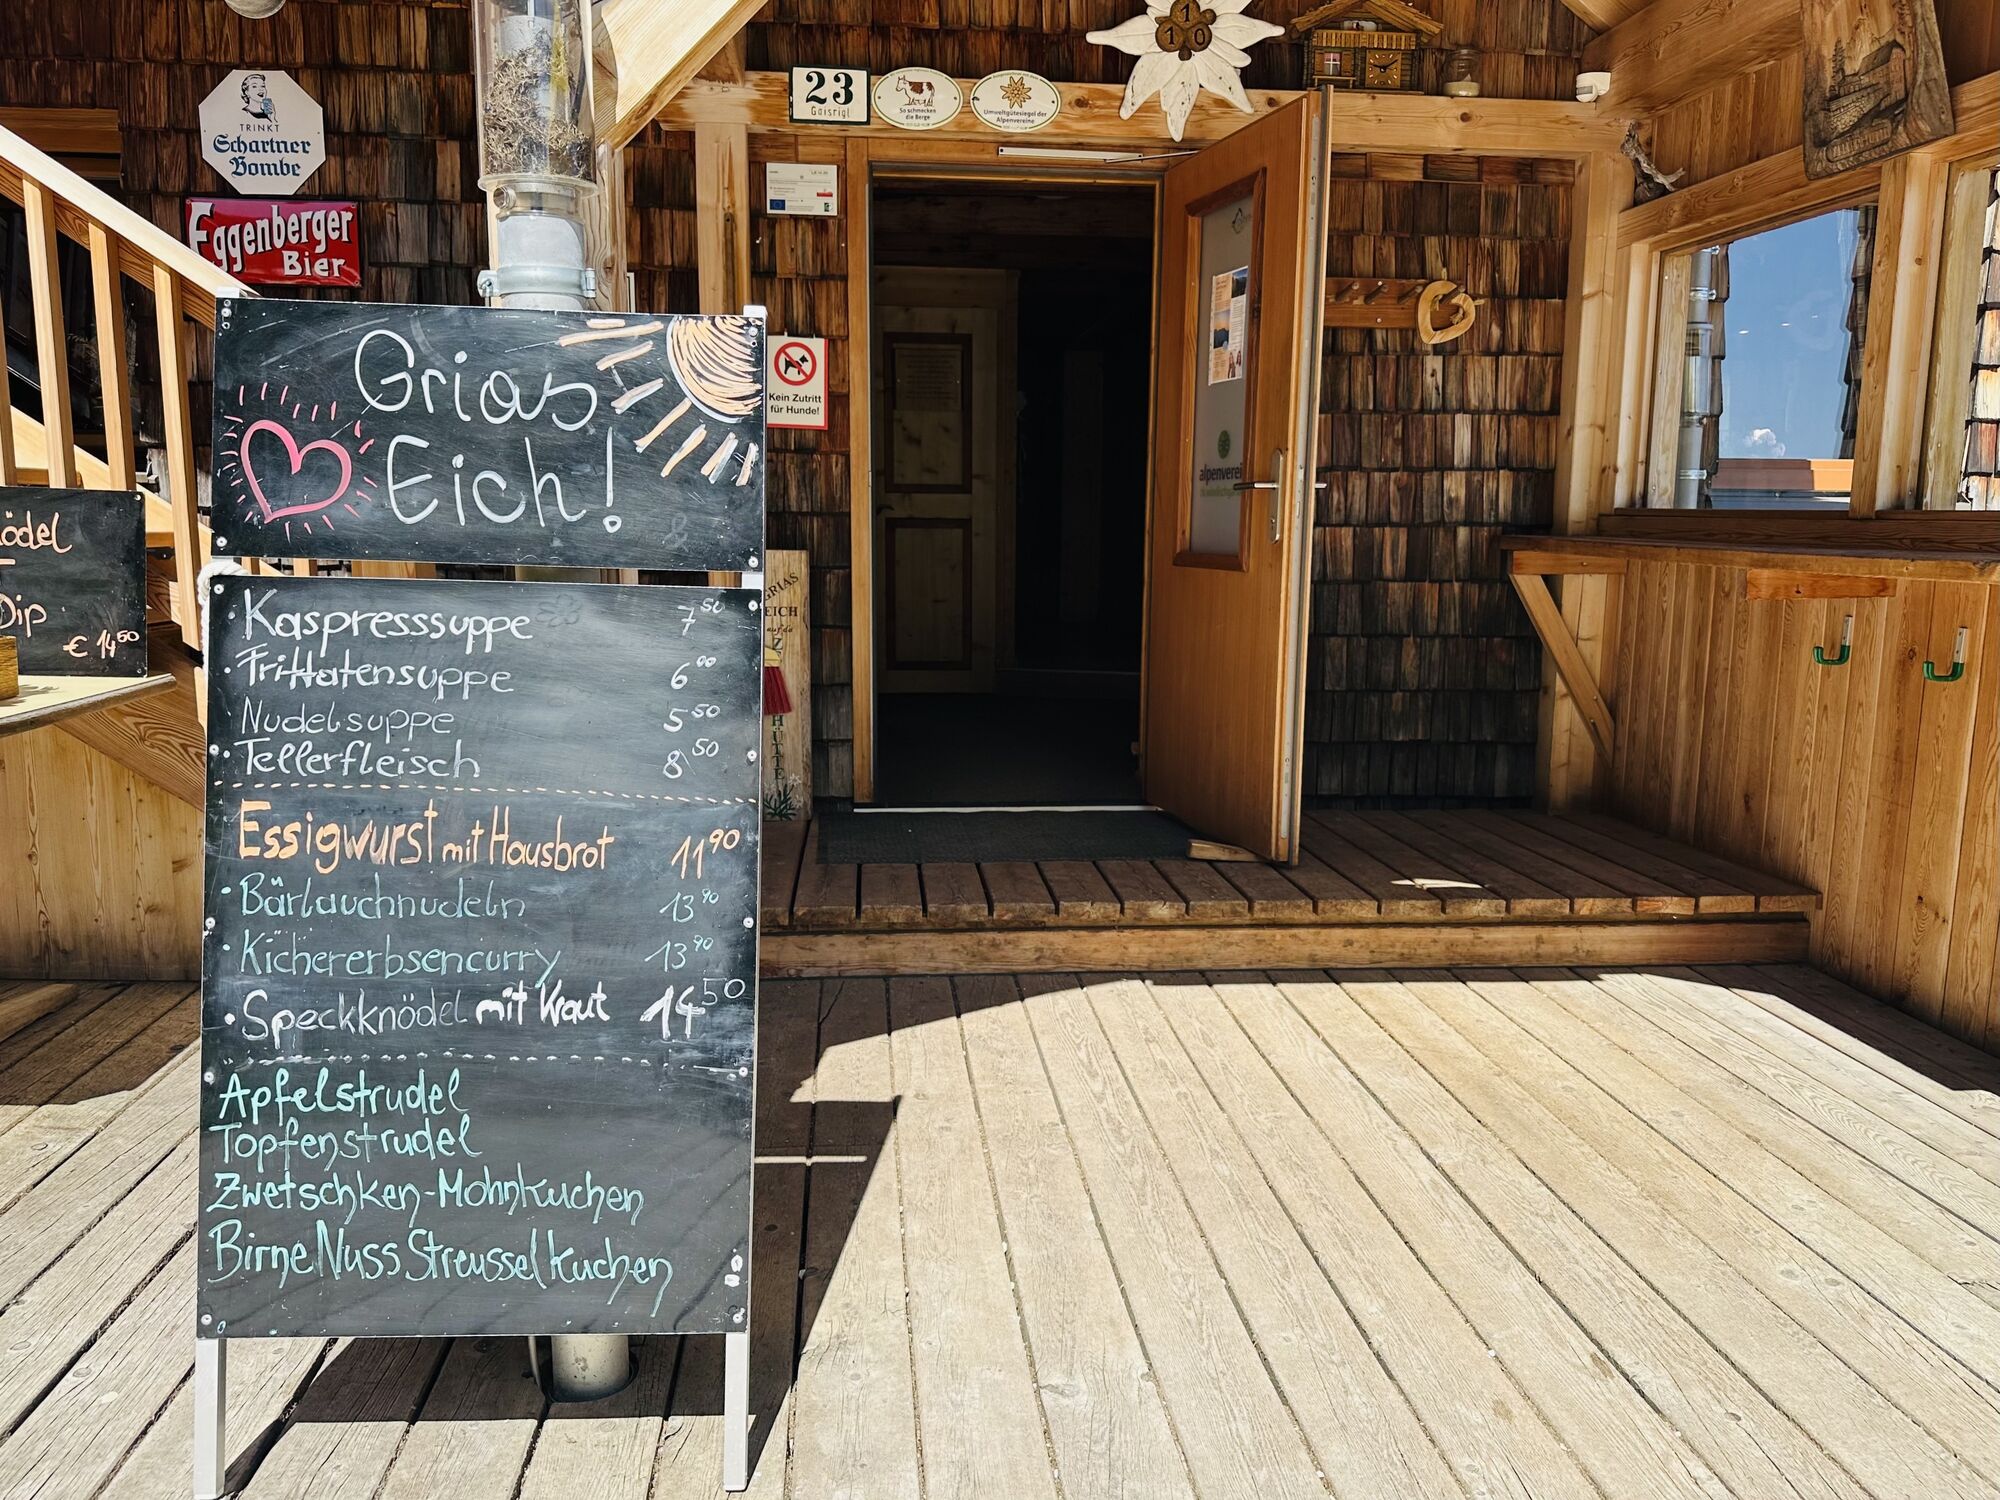 TRINKT
Schartner
Bombe
Eggenberger
Bier
23
Gaisrigl
So schmecken
die Berge
Umweltgütesiegel der
Alpenvereine
110
Kein Zutritt
für Hunde!
alpenverei
Grias
Eich!
ödel
Dip
€ 1450
GRIAS
EICH
auf da
HÜTTE
· Kaspresssuppe 7 50
· Frittatensuppe 6 00
Nudelsuppe 5 50
· Tellerfleisch 8 50
Essigwurst mit Hausbrot 11 90
· Bärlauchnudeln 13 90
· Kichererbsencurry 13 90
· Speckknödel mit Kraut 14 50
Apfelstrudel
Topfenstrudel
Zwetschken-Mohnkuchen
Birne Nuss Streusselkuchen